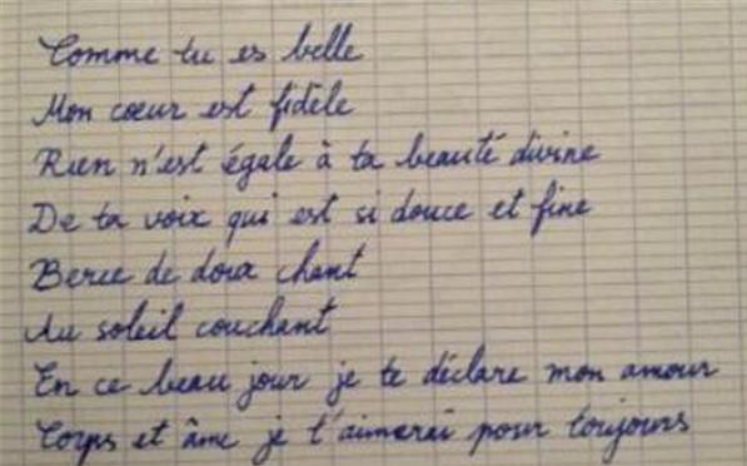 Comme tu es belle
Mon cœur est fidèle
Rien n'est égale à ta beauté divine
De ta voix qui est si douce et fine
Berce de doux chant
Au soleil couchant
En ce beau jour je te déclare mon amour
Corps et âme je t'aimerai pour toujours